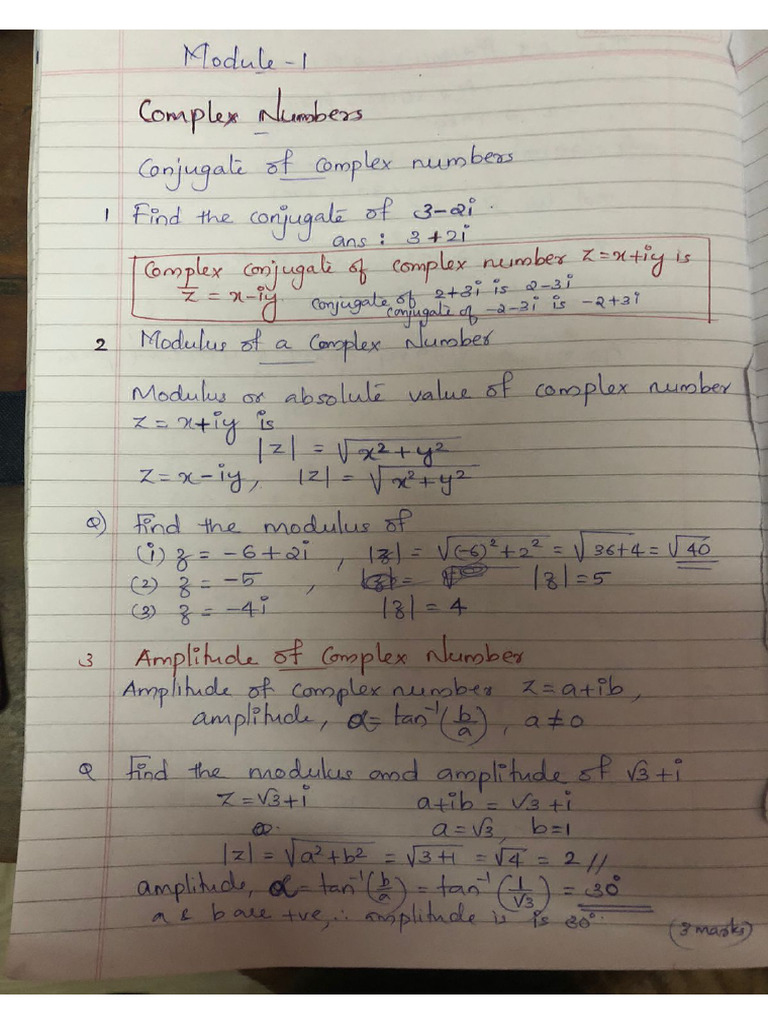 Module - 1
Complex Numbers
Conjugate of complex numbers
1 Find the conjugate of 3-2i.
ans : 3+2i
Complex conjugate of complex number z = x+iy is
z̅ = x-iy. conjugate of 2+3i is 2-3i
conjugate of -2-3i is -2+3i
2 Modulus of a Complex Number
Modulus or absolute value of complex number
z = x+iy is
|z| = √x²+y²
z = x-iy, |z| = √x²+y²
Q) Find the modulus of
(i) z = -6+2i , |z| = √(-6)²+2² = √36+4 = √40
(2) z = -5 , |z| = 5
(3) z = -4i |z| = 4
3 Amplitude of Complex Number
Amplitude of complex number z = a+ib,
amplitude, α = tan⁻¹(b/a), a ≠ 0
Q Find the modulus and amplitude of √3+i
z = √3+i a+ib = √3+i
a = √3, b = 1
|z| = √a²+b² = √3+1 = √4 = 2 //
amplitude, α = tan⁻¹(b/a) = tan⁻¹(1/√3) = 30°
a & b are +ve, ∴ amplitude is is 30°. (3 marks)